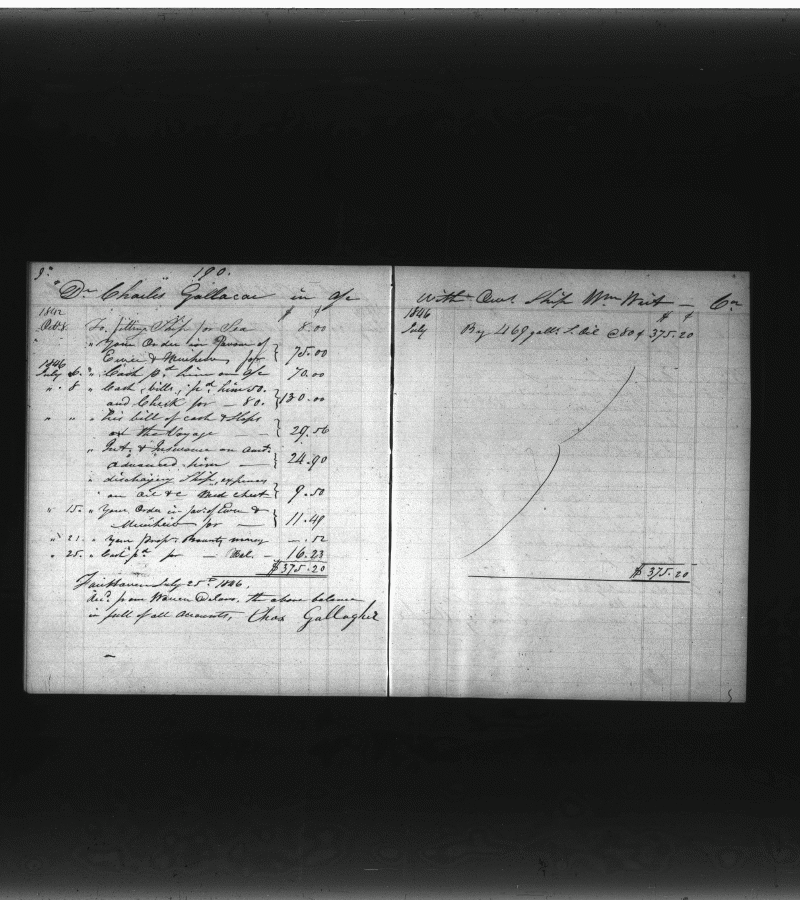 190.
Dr Charles Gallacar in a/c
$ ¢
1842
Oct 8. To fitting Ship for Sea 8.00
" Your Order in Favor of
Ewer & for 75.00
1846
July 6. " Cash pd him on a/c 70.00
" 8 " Cash, bills, pd him 50.
and Check for 80. 130.00
" " " his bill of cash & Slops
on the Voyage — 29.56
" Int. & Insurance on amt.
advanced him — 24.90
" discharging Ship, expenses
on Oil &c Med chest 9.50
" 15. " Your Order in fav. of Ewer &
for — 11.49
" 21. " Your prop. Bounty money —.52
" 25. " Cash pd for — Bal. - 16.23
$375.20
Fairhaven July 25th 1846.
Recd from Warren Delano, the above balance
in full of all accounts, Chas Gallagher
With Owrs Ship Wm Wirt — Cr
1846 $ ¢
July By 469 galls S. Oil @ 80¢ 375.20
$375.20